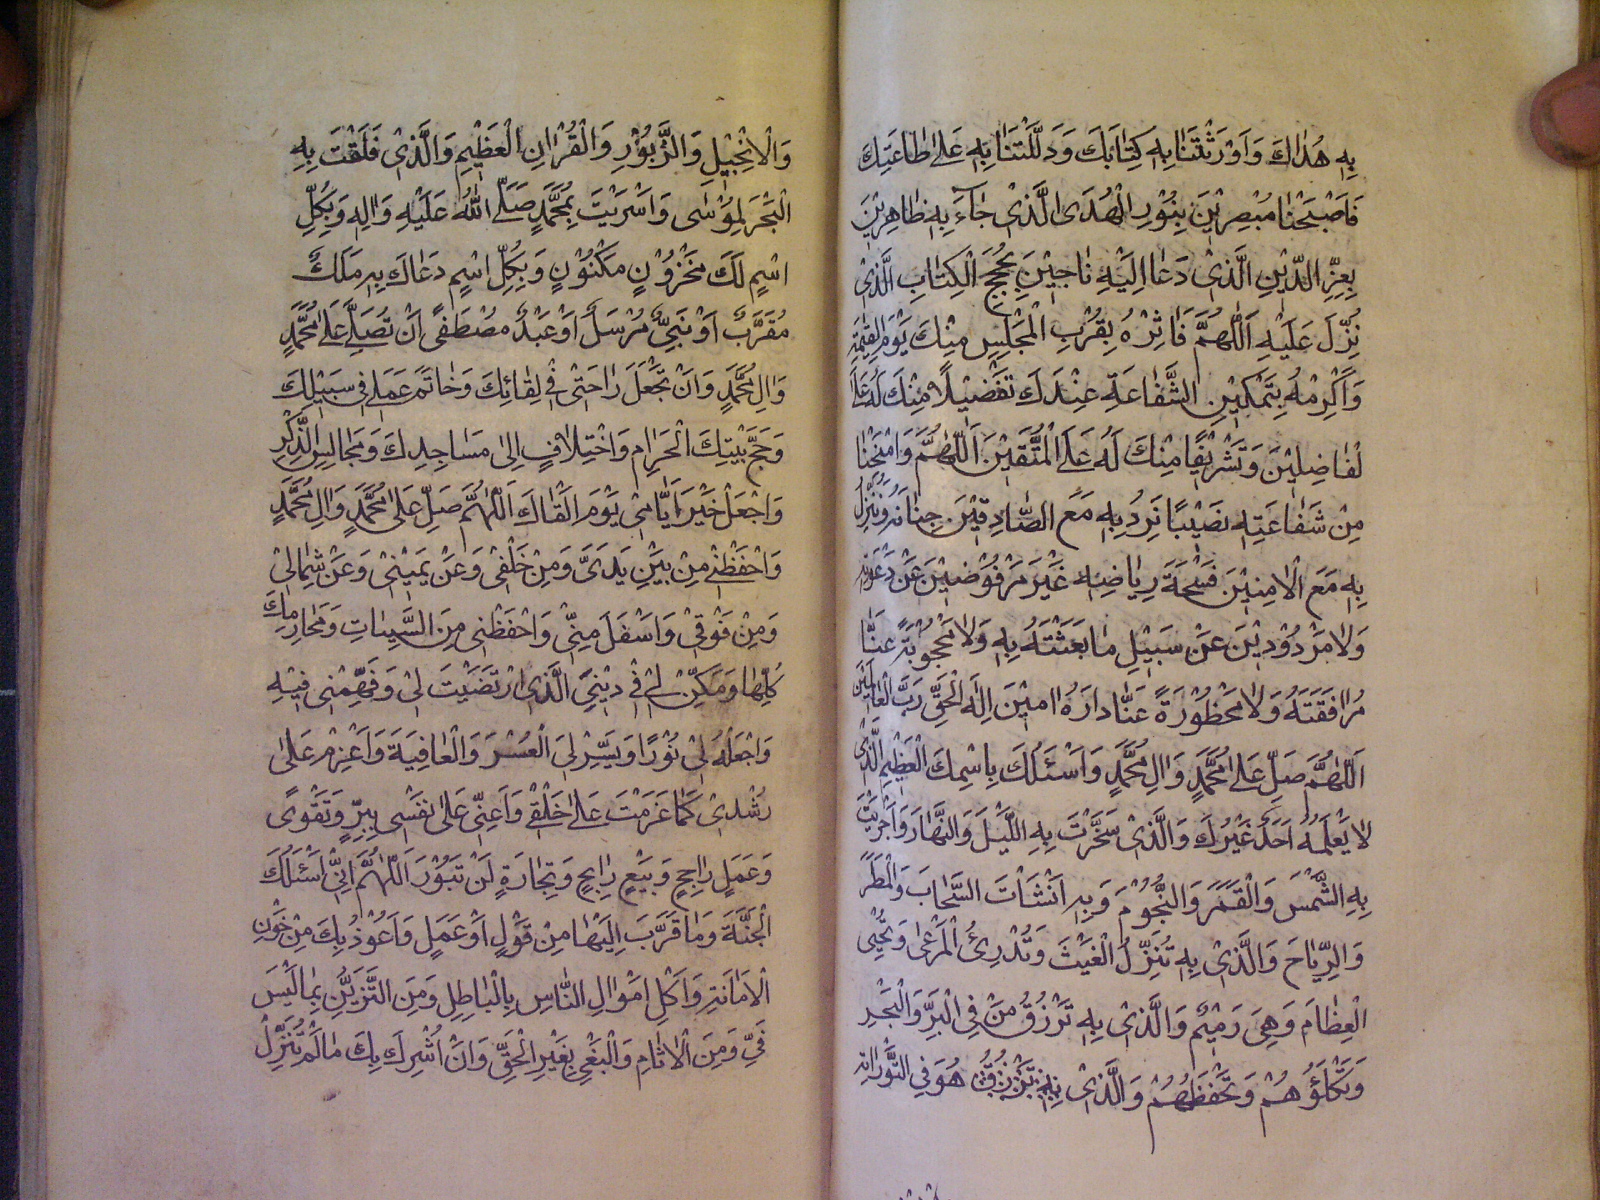 بِهِ هُدَاكَ وَاَوْرَثْتَنَا بِهِ كِتَابَكَ وَدَلَّلْتَنَا بِهِ عَلىٰ طَاعَتِكَ
فَاَصْبَحْنَا مُبْصِرِيْنَ بِنُوْرِ الْهُدَى الَّذِىْ جَاءَ بِهِ ظَاهِرِيْنَ
بِعِزِّ الدِّيْنِ الَّذِىْ دَعَا اِلَيْهِ نَاجِيْنَ بِحُجَجِ الْكِتَابِ الَّذِىْ
نُزِّلَ عَلَيْهِ اَللّٰهُمَّ فَاٰثِرْهُ بِقُرْبِ الْمَجْلِسِ مِنْكَ يَوْمَ الْقِيٰمَةِ
وَاَكْرِمْهُ بِتَمْكِيْنِ الشَّفَاعَةِ عِنْدَكَ تَفْضِيْلًا مِنْكَ لَهُ عَلَى
لْفَاضِلِيْنَ وَتَشْرِيْفًا مِنْكَ لَهُ عَلَى الْمُتَّقِيْنَ اَللّٰهُمَّ وَامْنَحْنَا
مِنْ شَفَاعَتِهِ نَصِيْبًا نَرِدُ بِهِ مَعَ الصَّادِقِيْنَ جِنَانَهُ وَنُنْزِلُ
بِهِ مَعَ الْاٰمِنِيْنَ فَسْحَةَ رِيَاضِهِ غَيْرَ مَرْفُوْضِيْنَ عَنْ دَعْوَتِهِ
وَلَا مَرْدُوْدِيْنَ عَنْ سَبِيْلِ مَا بَعَثْتَهُ بِهِ وَلَا مَحْجُوْبَةً عَنَّا
مُرَافَقَتُهُ وَلَا مَحْظُوْرَةً عَنَّا دَارُهُ اٰمِيْنَ اِلٰهَ الْحَقِّ رَبَّ الْعَالَمِيْنَ
اَللّٰهُمَّ صَلِّ عَلىٰ مُحَمَّدٍ وَاٰلِ مُحَمَّدٍ وَاَسْئَلُكَ بِاسْمِكَ الْعَظِيْمِ الَّذِىْ
لَا يَعْلَمُهُ اَحَدٌ غَيْرُكَ وَالَّذِىْ سَخَّرْتَ بِهِ اللَّيْلَ وَالنَّهَارَ وَاَجْرَيْتَ
بِهِ الشَّمْسَ وَالْقَمَرَ وَالنُّجُوْمَ وَبِهِ اَنْشَأْتَ السَّحَابَ وَالْمَطَرَ
وَالرِّيَاحَ وَالَّذِىْ بِهِ تُنَزِّلُ الْغَيْثَ وَتُذْرِئُ الْمَرْعىٰ وَتُحْيِى
الْعِظَامَ وَهِىَ رَمِيْمٌ وَالَّذِىْ بِهِ تَرْزُقُ مَنْ فِى الْبَرِّ وَالْبَحْرِ
وَتَكْلَؤُهُمْ وَتَحْفَظُهُمْ وَالَّذِىْ هُوَ فِى التَّوْرَاةِ
وَالْاِنْجِيْلِ وَالزَّبُوْرِ وَالْقُرْاٰنِ الْعَظِيْمِ وَالَّذِىْ فَلَقْتَ بِهِ
الْبَحْرَ لِمُوْسٰى وَاَسْرَيْتَ بِمُحَمَّدٍ صَلَّى اللّٰهُ عَلَيْهِ وَاٰلِهِ وَبِكُلِّ
اسْمٍ لَكَ مَخْزُوْنٍ مَكْنُوْنٍ وَبِكُلِّ اسْمٍ دَعَاكَ بِهِ مَلَكٌ
مُقَرَّبٌ اَوْ نَبِىٌّ مُرْسَلٌ اَوْ عَبْدٌ مُصْطَفًى اَنْ تُصَلِّىَ عَلىٰ مُحَمَّدٍ
وَاٰلِ مُحَمَّدٍ وَاَنْ تَجْعَلَ رَاحَتِىْ فِىْ لِقَائِكَ وَخَاتَمَ عَمَلِىْ فِىْ سَبِيْلِكَ
وَحَجَّ بَيْتِكَ الْحَرَامِ وَاخْتِلَافٍ اِلىٰ مَسَاجِدِكَ وَمَجَالِسِ الذِّكْرِ
وَاجْعَلْ خَيْرَ اَيَّامِىْ يَوْمَ اَلْقَاكَ اَللّٰهُمَّ صَلِّ عَلىٰ مُحَمَّدٍ وَاٰلِ مُحَمَّدٍ
وَاحْفَظْنِىْ مِنْ بَيْنِ يَدَىَّ وَمِنْ خَلْفِىْ وَعَنْ يَمِيْنِىْ وَعَنْ شِمَالِىْ
وَمِنْ فَوْقِىْ وَاَسْفَلَ مِنِّىْ وَاحْفَظْنِى مِنَ السَّيِّئَاتِ وَمَحَارِمِكَ
كُلِّهَا وَمَكِّنْ لِىْ فِىْ دِيْنِىَ الَّذِى ارْتَضَيْتَ لِىْ وَفَهِّمْنِى فِيْهِ
وَاجْعَلْهُ لِىْ نُوْرًا وَيَسِّرْ لِىَ الْعُسْرَ وَالْعَافِيَةَ وَاعْزِمْ عَلىٰ
رُشْدِىْ كَمَا عَزَمْتَ عَلىٰ خَلْقِىْ وَاَعِنِّى عَلىٰ نَفْسِى بِبِرٍّ وَتَقْوًى
وَعَمَلٍ رَاجِحٍ وَبَيْعٍ رَابِحٍ وَتِجَارَةٍ لَنْ تَبُوْرَ اَللّٰهُمَّ اِنِّىْ اَسْئَلُكَ
الْجَنَّةَ وَمَا قَرَّبَ اِلَيْهَا مِنْ قَوْلٍ اَوْ عَمَلٍ وَاَعُوْذُ بِكَ مِنْ خَوْنِ
الْاَمَانَةِ وَاَكْلِ اَمْوَالِ النَّاسِ بِالْبَاطِلِ وَمِنَ التَّزَيُّنِ بِمَا لَيْسَ
فِىَّ وَمِنَ الْاٰثَامِ وَالْبَغْىِ بِغَيْرِ الْحَقِّ وَاَنْ اُشْرِكَ بِكَ مَا لَمْ تُنَزِّلْ